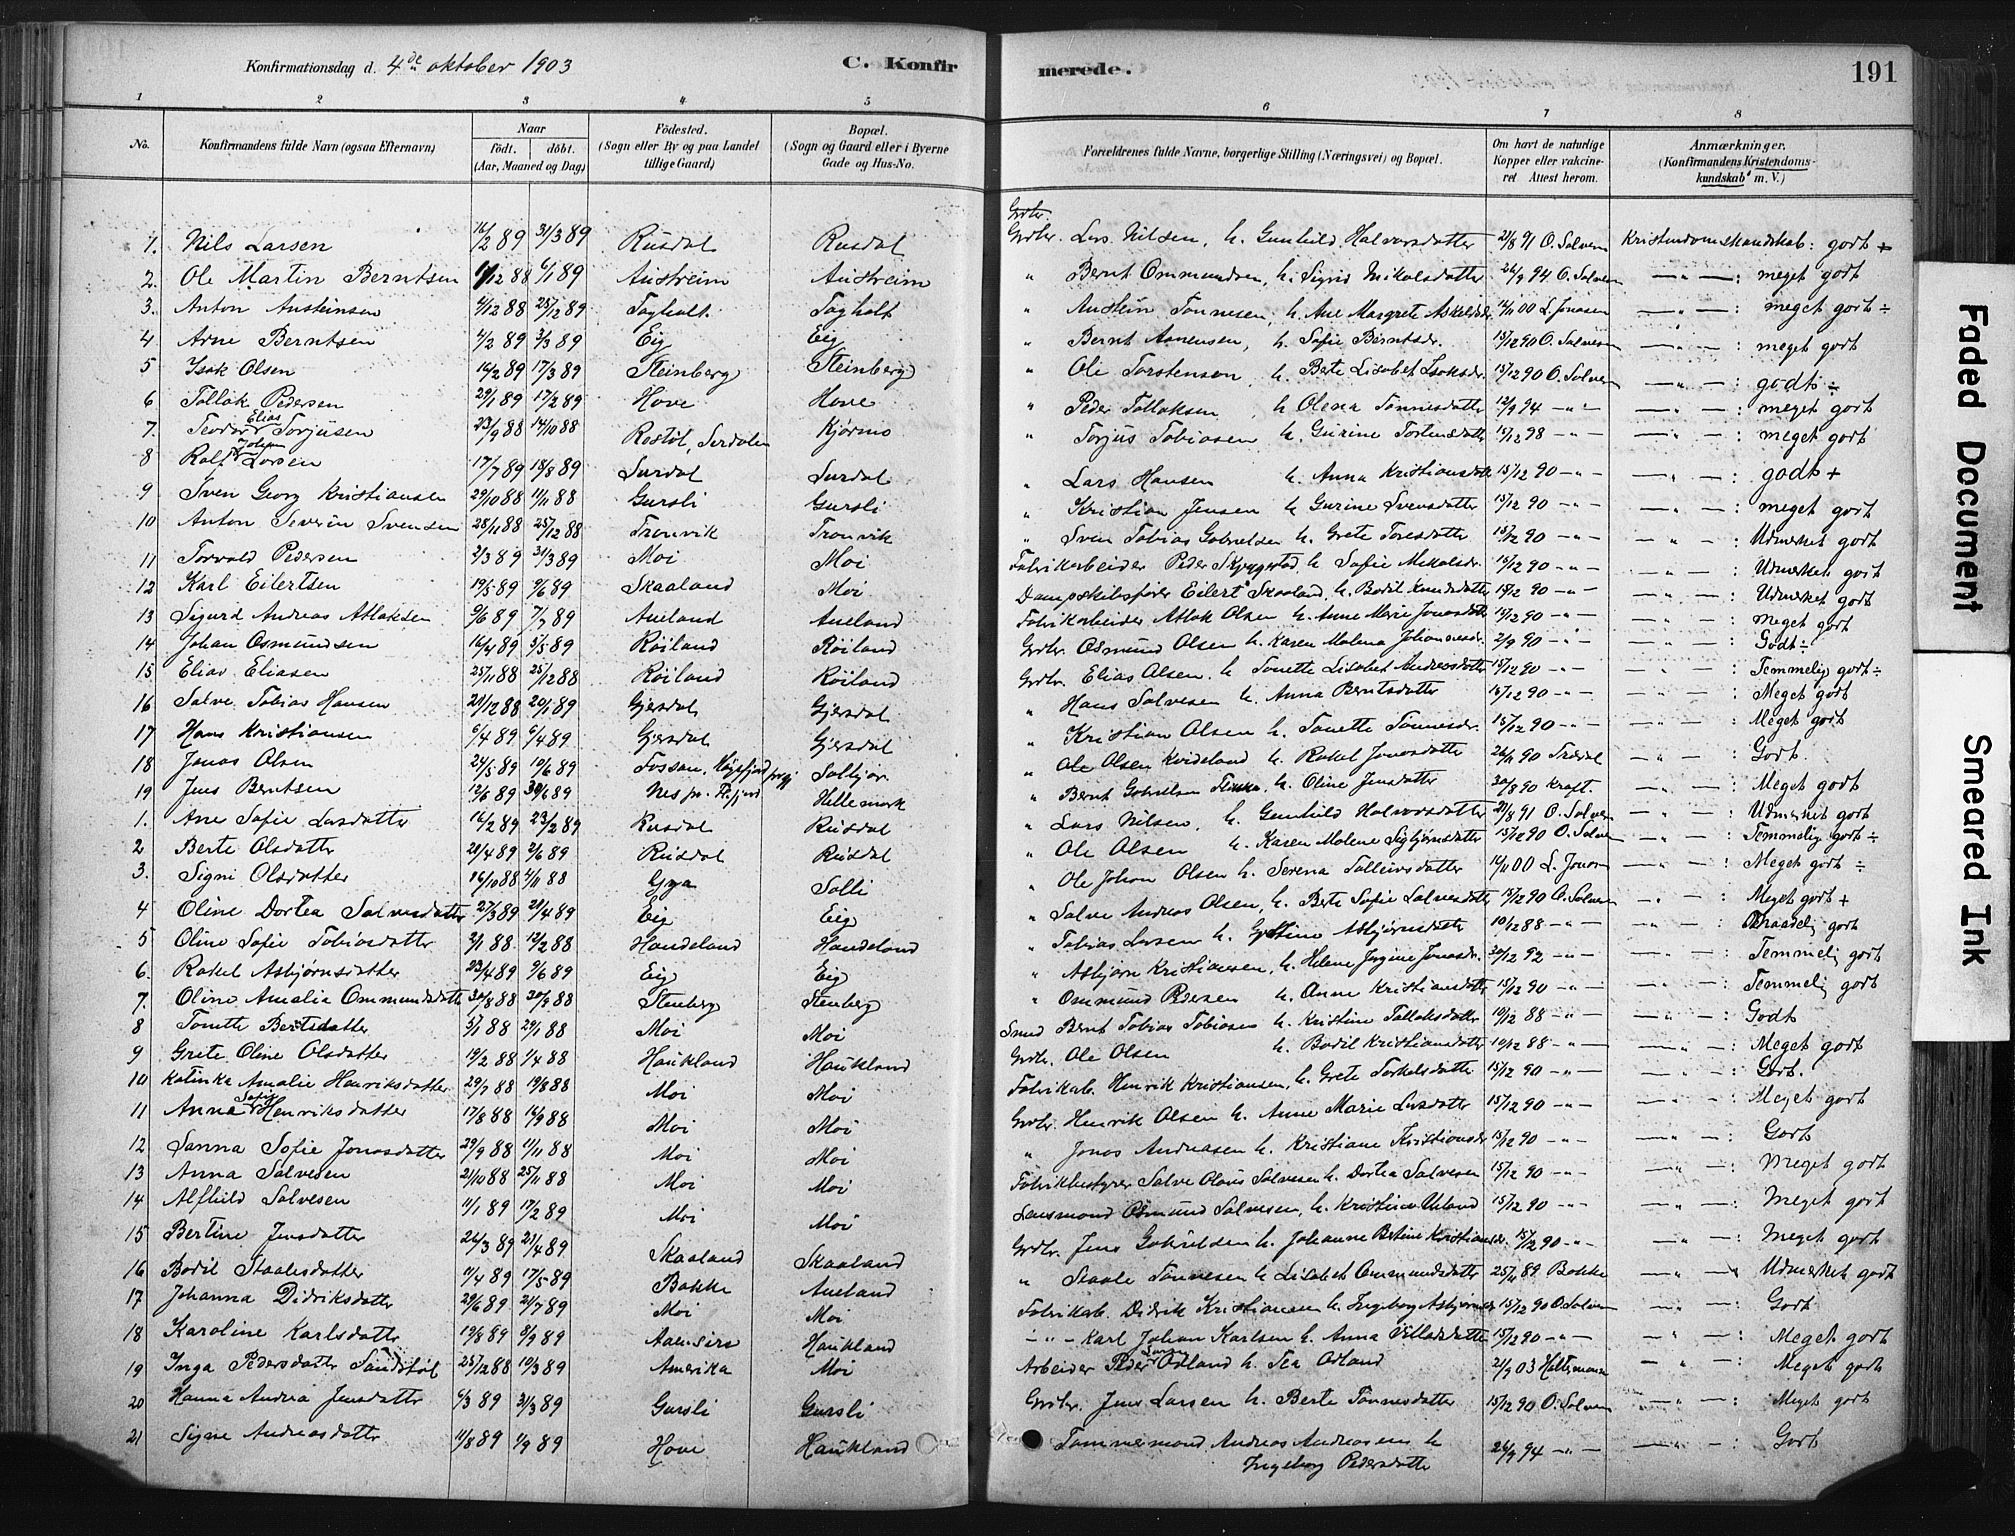 Konfirmationsdag d. 4de oktober 1903
C. Konfir
merede.
191
1 2 3 4 5 6 7 8
No.
Konfirmandens fulde Navn (ogsaa Efternavn)
Naar
født. døbt.
(Aar, Maaned og Dag)
Fødested.
(Sogn eller By og paa Landet
tillige Gaard)
Bopæl.
(Sogn og Gaard eller i Byerne
Gade og Hus-No.
Forældrenes fulde Navne, borgerlige Stilling (Næringsvei) og Bopæl.
Om havt de naturlige
Kopper eller vakcine-
ret Attest herom.
Anmærkninger.
(Konfirmandens Kristendoms-
kundskab m. V.)
Grdbr.
1. Nils Larsen 16/2 89 31/3 89 Rusdal Rusdal Grdbr. Lars Nilsen, h. Gunhild Halvorsdatter 21/8 91 O. Salvesen Kristendomskundskab: godt +
2. Ole Martin Berntsen 1/12 88 6/1 89 Austreim Austreim " Bernt Ommundsen, h. Sigrid Mikalsdatter 26/9 94 O. Salvesen — " — : meget godt
3. Anton Austeinsen 4/12 88 25/12 89 Tagholt Tagholt " Austein Tonnesen, h. Ane Margrete Askildsdr. 14/11 00 L. Jonasen — " — : meget godt ÷
4 Arne Berntsen 4/2 89 3/3 89 Eig Eig " Bernt Aanensen, h. Sofie Berntsdr. 15/12 90 O. Salvesen — " — : meget godt
5 Isak Olsen 14/2 89 17/3 89 Steinberg Steinberg " Ole Torstensen, h. Berte Lisabet Isaksdr. 15/12 90 O. Salvesen — " — : godt ÷
6 Tollak Pedersen 29/1 89 17/2 89 Hove Hove " Peder Tollaksen h. Olena Tonnesdatter 12/9 94 — " — — " — : meget godt
7. Teodor Elias Torjusen 23/9 88 14/10 88 Rostøl, Serdalen Kjørmo " Torjus Tobiasen h. Gurine 15/12 98 — " — — " — : meget godt
8 Ralf Johan Larsen 17/7 89 18/8 89 Surdal Surdal " Lars Hansen h. Anna Kristiansdtr 15/12 90 — " — — " — : godt +
9 Sven Georg Kristiansen 29/10 88 11/11 88 Gursli Gursli " Kristian Jensen h. Gurine Svensdatter 15/12 90 — " — — " — : meget godt
10 Anton Severin Svensen 28/11 88 25/12 88 Tronvik Tronvik " Sven Tobias Gabrielsen h. Grete Toresdatter 15/12 90 — " — — " — : Udmerket godt
11 Torvald Pedersen 2/3 89 31/3 89 Moi Moi Fabrikarbeider Peder h. Sofie 15/12 90 — " — — " — : Udmerket godt
12 Karl Eilertsen 19/5 89 9/6 89 Skaaland Moi Dampskibsfører Eilert Skaaland, h. Bodil Knudsdatter 15/12 90 — " — — " — : Udmerket godt
13 Sigurd Andreas Atlaksen 9/6 89 7/7 89 Aueland Aueland Fabrikarbeider Atlak Olsen h. Anne Marie Jonasdatter 15/12 90 — " — — " — : meget godt
14 Johan Osmundsen 16/4 89 5/5 89 Røiland Røiland Grdbr. Osmund Olsen h. Karen Malena Johannesdr. 2/9 90 — " — — " — : Godt ÷
15 Elias Eliasen 25/11 88 25/12 88 Røiland Røiland Grdbr. Elias Olsen. h. Tonette Lisabet Andreasdatter 15/12 90 — " — — " — : Temmelig godt ÷
16 Salve Tobias Hansen 21/12 88 20/1 89 Gjersdal Gjersdal " Hans Salvesen h. Anna Berntsdatter 15/12 90 — " — — " — : Meget godt
17 Hans Kristiansen 6/4 89 6/4 89 Gjersdal Gjersdal " Kristian Olsen h. Tonette Tonnesdr. 15/12 90 — " — — " — : Meget godt
18 Jonas Olsen 24/5 89 10/6 89 Fossan, Høgsfjord Solbjør " Ole Olsen Kvideland h. Rakel Jonasdatter 26/11 90 — " — : Godt.
19 Jens Berntsen 12/6 89 30/6 89 Nes Hellemork " Bernt Gabrielsen h. Oline Jensdatter 30/8 90 Kraft. — " — : Meget godt
1. Ane Sofie Larsdatter 16/2 89 23/2 89 Rusdal Rusdal " Lars Nilsen, h. Gunhild Halvorsdatter 21/8 91 O. Salvesen — " — : Udmerket godt
2 Berte Olsdatter 21/4 89 2/6 89 Rusdal Rusdal " Ole Olsen h. Karen Malene Sigbjørnsdatter 15/12 90 O. Salvesen — " — : Temmelig godt ÷
3. Signi Olsdatter 16/10 88 4/11 88 Gya Solli " Ole Johan Olsen h. Serena Talleivsdatter 14/11 00 L. Jonasen — " — : Meget godt ÷
4 Oline Dortea Salvesdatter 27/3 89 21/4 89 Eig Eig " Salve Andreas Olsen, h. Berte Sofie Salvesdatter 15/12 90 O. Salvesen — " — : Meget godt +
5 Oline Sofie Tobiasdatter 2/1 88 12/2 88 Handeland Handeland " Tobias Larsen h. Asbjørnsdatter 10/12 88 — " — — " — : godt
6. Rakel Asbjørnsdatter 23/4 89 9/6 89 Eig Eig " Asbjørn Kristiansen, h. Helene Jorgine Jonasdr. 20/12 92 — " — — " — : Temmelig godt
7. Oline Amalia Ommundsdatter 30/8 88 30/9 88 Stenberg Stenberg " Ommund Pedersen h. Anne Kristiansdatter 15/12 90 — " — — " — : Temmelig godt
8 Tonette Berntsdatter 3/1 88 29/1 88 Moi Moi Smed Bernt Tobias Tobiasen h. Kristine Tollaksdatter 10/12 88 — " — — " — : Godt
9 Grete Oline Olsdatter 19/2 88 1/4 88 Haukland Haukland Grdbr. Ole Olsen h. Bodil Kristiansdatter 10/12 88 — " — — " — : Meget godt
10 Katinka Amalie Henriksdatter 29/7 88 19/8 88 Moi Moi Fabrikab. Henrik Kristiansen, h. Grete Torkelsdatter 15/12 90 — " — — " — : Godt.
11 Anna Sofie Henriksdatter 17/8 88 16/9 88 Moi Moi Grdbr. Henrik Olsen h. Anne Marie Larsdatter 15/12 90 — " — — " — : Meget godt
12 Sanna Sofie Jonasdatter 29/9 88 11/11 88 Moi Moi " Jonas Andreasen h. Kristiane Kristiansdr 15/12 90 — " — — " — : Godt
13 Anna Salvesen 21/10 88 25/11 88 Moi Moi Fabrikbestyrer Salve Olaus Salvesen h. Dortea Salvesen 15/12 90 — " — — " — : Meget godt
14 Alfhild Salvesen 11/1 89 17/2 89 Moi Moi Lensmand Osmund Salvesen, h. Kristine Ueland 15/12 90 — " — — " — : Meget godt
15 Bertine Jensdatter 24/3 89 21/4 89 Skaaland Skaaland Grdbr. Jens Gabrielsen h. Johanne Bertine Kristiansdr. 15/12 90 — " — — " — : Meget godt
16 Bodil Staalesdatter 11/4 89 17/5 89 Bakke Aueland " Staale Tonnesen h. Lisabet Ommundsdatter 25/11 89 Bakke — " — : Udmerket godt
17 Johanna Didriksdatter 29/6 89 21/7 89 Moi Moi Fabrikab. Didrik Kristiansen h. Ingeborg Asbjørnsdr 15/12 90 O. Salvesen — " — : Godt
18 Karoline Karlsdatter 19/8 89 8/9 89 Aaensire Haukland — " — Karl Johan Karlsen h. Anna 15/12 90 — " — — " — : Meget godt
19 Inga Pedersdatter Sandstøl 25/12 88 10/3 89 Amerika Moi Arbeider Peder Odland h. Tea Odland 21/9 03 Haltermann — " — : Meget godt
20 Hanna Andrea Jensdatter 6/3 89 31/3 89 Gursli Gursli Grdbr. Jens Larsen h. Berte Tonnesdatter 15/12 90 O. Salvesen — " — : Meget godt
21 Signe Andreasdatter 11/8 89 1/9 89 Hove Haukland Tømmermand Andreas Andreasen h. 26/9 94 — " — — " — : Godt
Ingeborg Pedersdatter
Faded Document
Smeared Ink